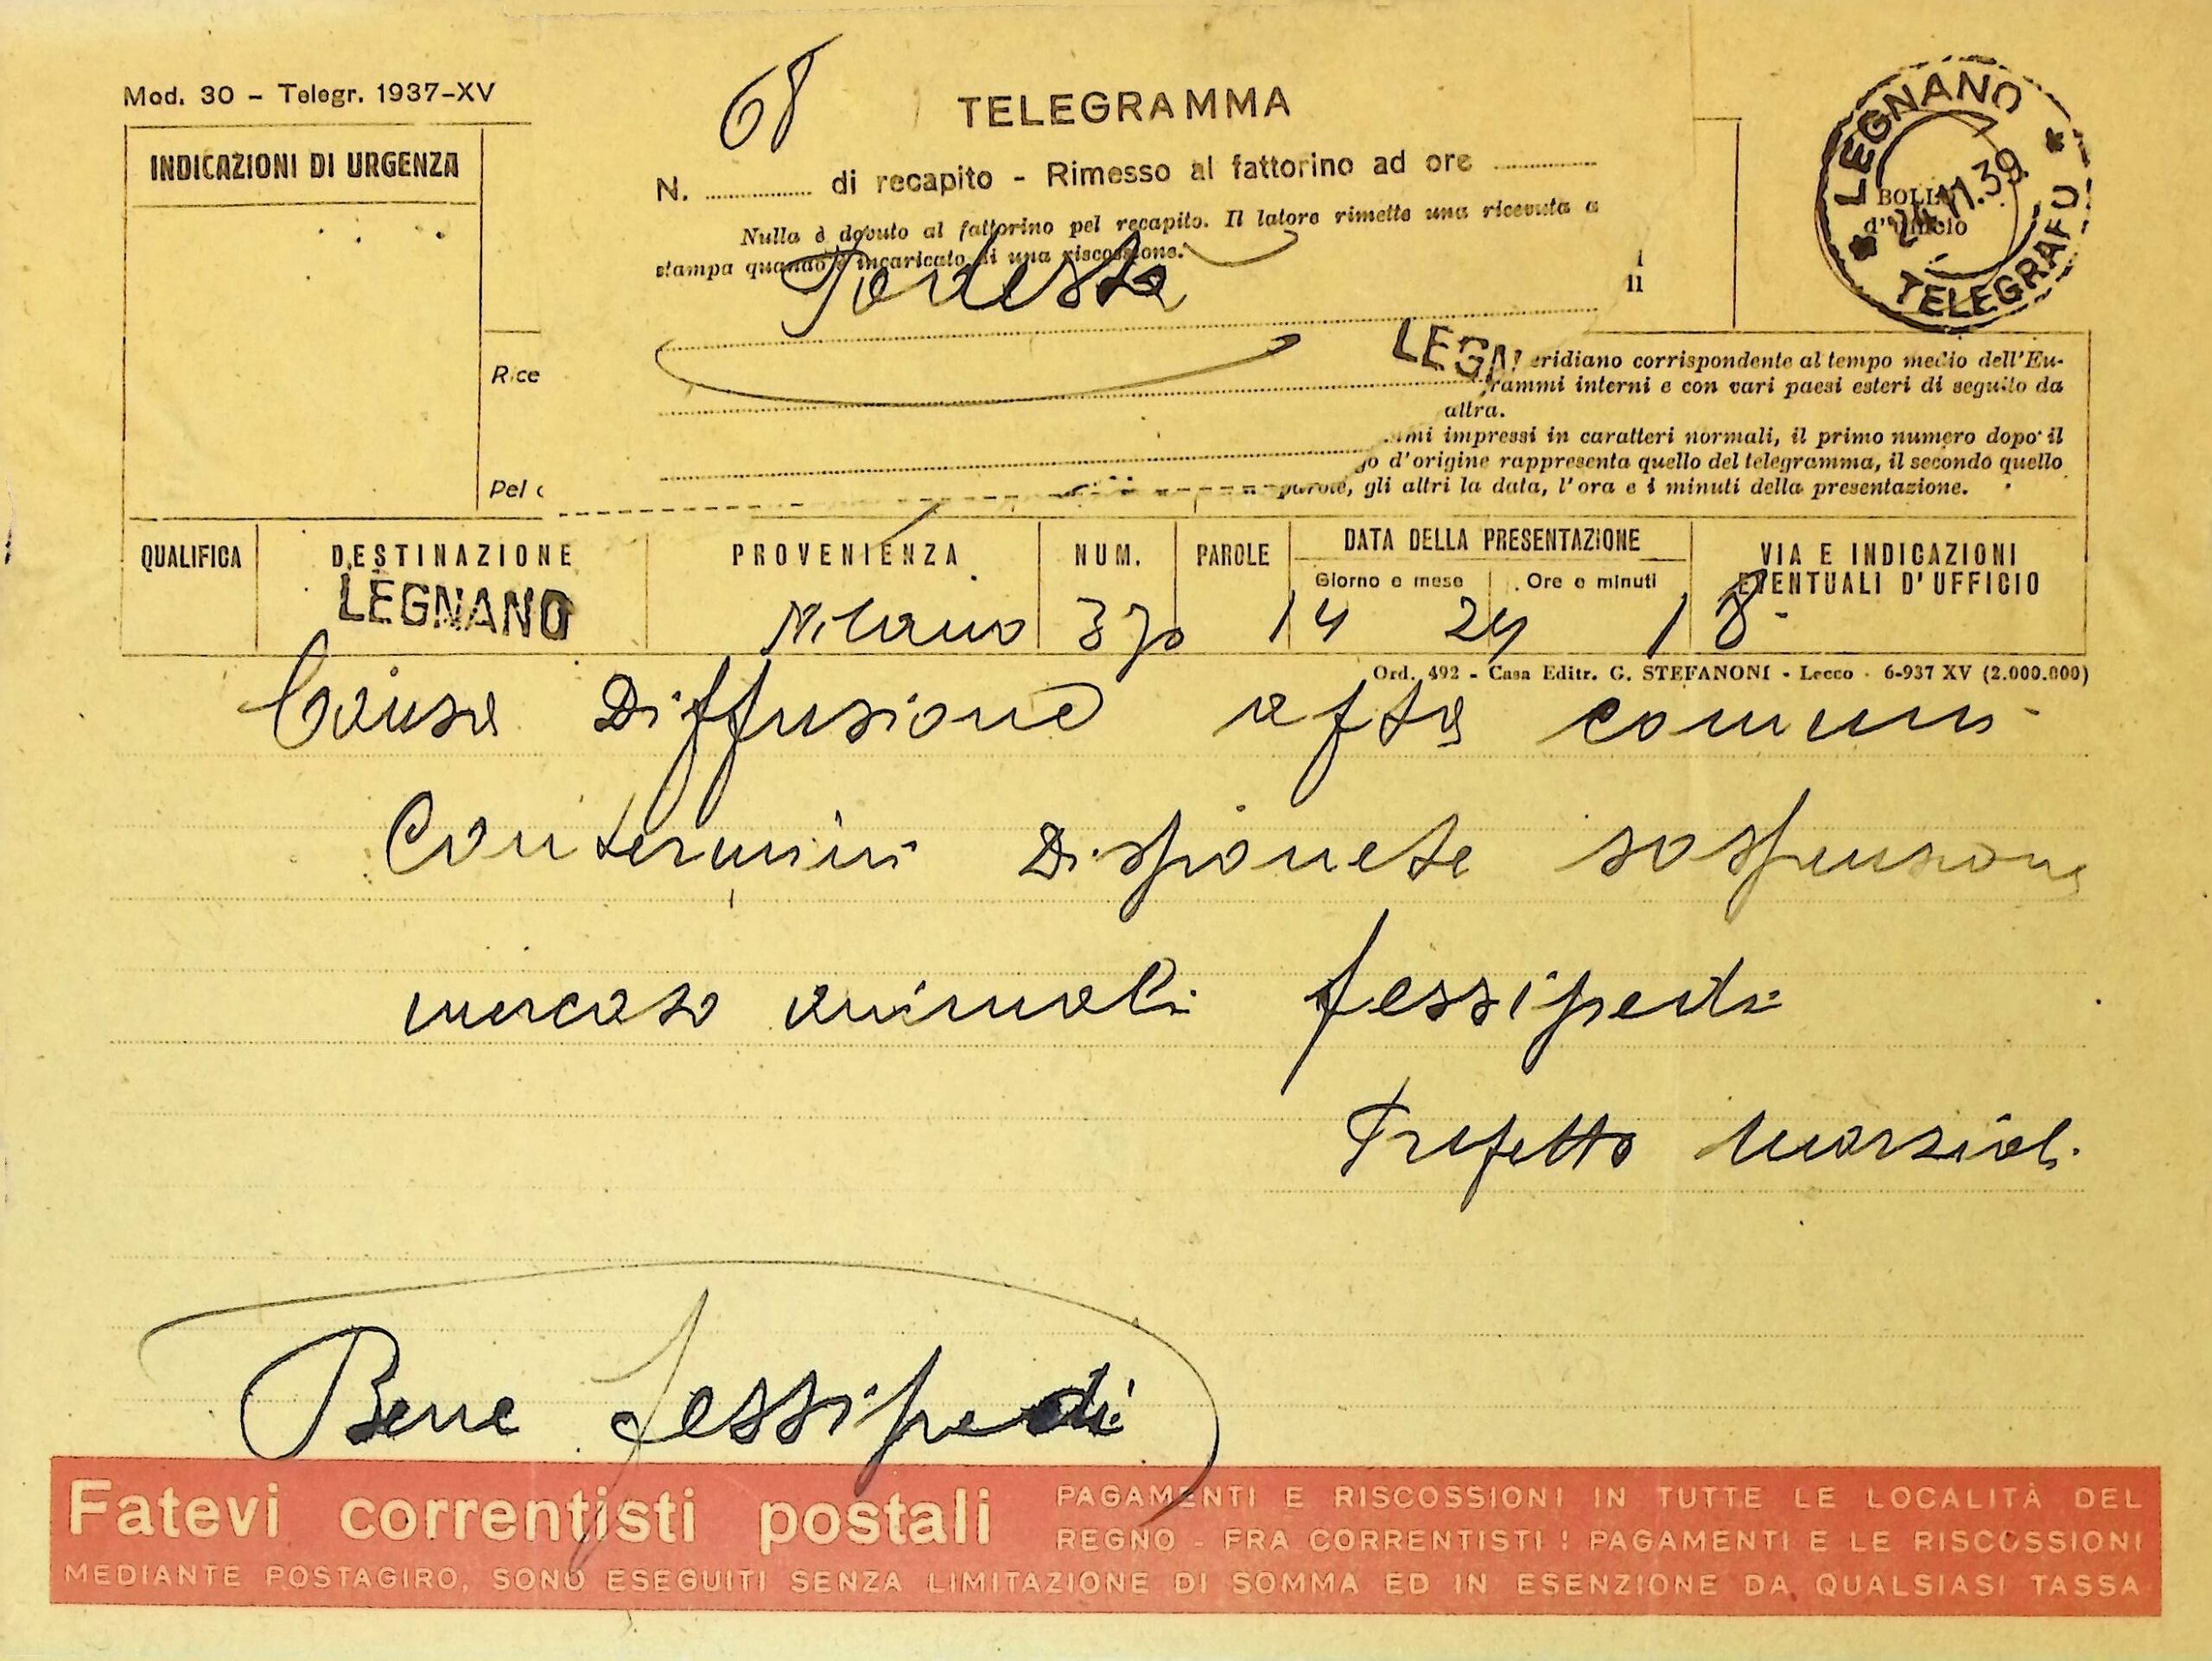 Mod. 30 - Telegr. 1937-XV
INDICAZIONI DI URGENZA
68
TELEGRAMMA
N. di recapito - Rimesso al fattorino ad ore
Nulla è dovuto al fattorino pel recapito. Il latore rimette una ricevuta a
stampa quando è incaricato di una riscossione.
Podestà
LEGNANO
BOLLO
d'ufficio
24.11.39
TELEGRAFO
Rice
Pel
LEGN
eridiano corrispondente al tempo medio dell'Eu-
rammi interni e con vari paesi esteri di seguito da
altra.
mi impressi in caratteri normali, il primo numero dopo il
go d'origine rappresenta quello del telegramma, il secondo quello
parole, gli altri la data, l'ora e i minuti della presentazione.
QUALIFICA DESTINAZIONE PROVENIENZA NUM. PAROLE DATA DELLA PRESENTAZIONE VIA E INDICAZIONI EVENTUALI D'UFFICIO
Giorno e mese Ore e minuti
LEGNANO Milano 370 14 24 18
Ord. 492 - Casa Editr. G. STEFANONI - Lecco - 6-937 XV (2.000.000)
Causa Diffusione afta comuni
Contermini Disponete sospensione
mercato animali fessipedi
Prefetto Marziali
Bene fessipedi
Fatevi correntisti postali
PAGAMENTI E RISCOSSIONI IN TUTTE LE LOCALITÀ DEL
REGNO - FRA CORRENTISTI I PAGAMENTI E LE RISCOSSIONI
MEDIANTE POSTAGIRO, SONO ESEGUITI SENZA LIMITAZIONE DI SOMMA ED IN ESENZIONE DA QUALSIASI TASSA